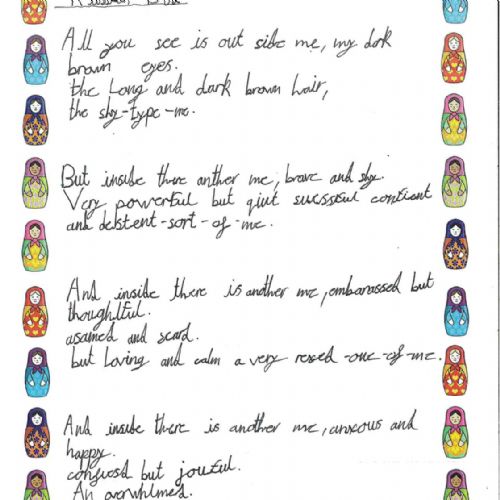 All you see is out side me, my dark
brown eyes.
the Long and dark brown hair,
the shy-type-me.
But inside there anther me, brave and shy.
Very powerful but qiut sucssful conficent
and destent-sort-of-me.
And inside there is another me, embarassed but
thoughtful.
asamed and scard.
but Loving and calm a very resed-one-of-me.
And inside there is another me, anxous and
happy.
confused but joyful.
An overwhlmed.